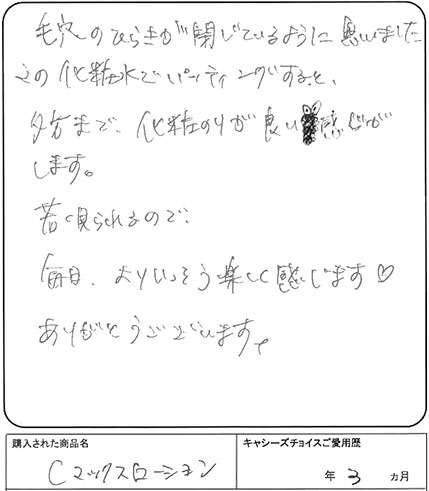 毛穴のひらきが閉じているように思いました
この化粧水でパッティングすると、
夕方まで、化粧のりが良い感じが
します。
若く見られるので、
毎日、よりいっそう楽しく感じます♡
ありがとうございます。
購入された商品名
キャシーズチョイスご愛用歴
Cマックスローション
年 3 ヵ月